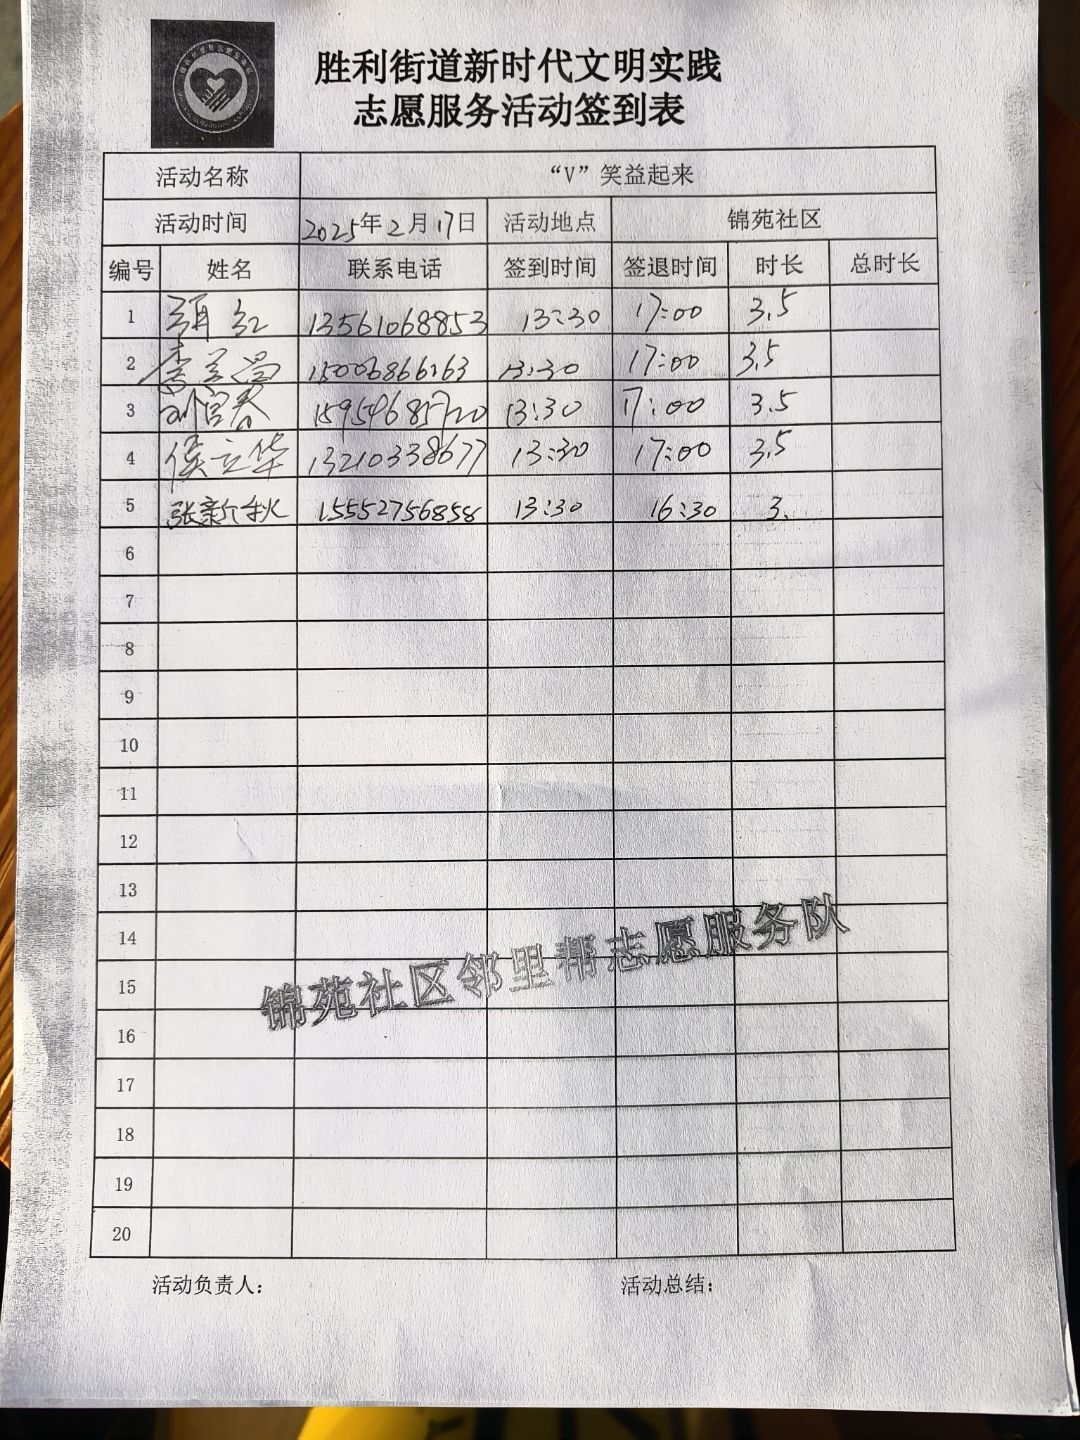 胜利街道新时代文明实践
志愿服务活动签到表
活动名称 “V”笑益起来
活动时间 2025年2月17日 活动地点 锦苑社区
编号 姓名 联系电话 签到时间 签退时间 时长 总时长
1 红 13561068853 13:30 17:00 3.5
2 李兰昌 15006866263 13:30 17:00 3.5
3 刘官春 15954685720 13:30 17:00 3.5
4 侯立华 13210338677 13:30 17:00 3.5
5 张新秋 15552756858 13:30 16:30 3.
6
7
8
9
10
11
12
13
14
锦苑社区邻里帮志愿服务队
15
16
17
18
19
20
活动负责人： 活动总结：